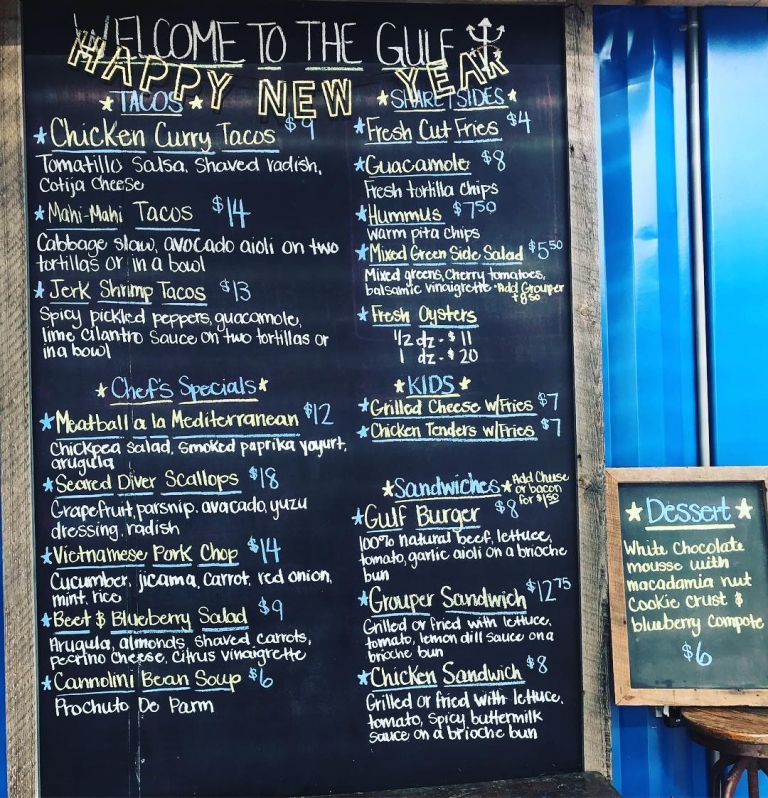 WELCOME TO THE GULF
HAPPY NEW YEAR
TACOS
Chicken Curry Tacos $9
Tomatillo Salsa, Shaved radish,
Cotija Cheese
Mahi-Mahi Tacos $14
Cabbage slaw, avocado aioli on two
tortillas or in a bowl
Jerk Shrimp Tacos $13
Spicy pickled peppers, guacamole,
lime cilantro sauce on two tortillas or
in a bowl
Chef's Specials
Meatball a la Mediterranean $12
Chickpea salad, smoked paprika yogurt,
arugula
Seared Diver Scallops $18
Grapefruit, parsnip, avocado, yuzu
dressing, radish
Vietnamese Pork Chop $14
Cucumber, jicama, carrot, red onion,
mint, rice
Beet & Blueberry Salad $9
Arugula, almonds, shaved carrots,
pecrino cheese, citrus vinaigrette
Cannolini Bean Soup $6
Prochuto De Parm
SHARE & SIDES
Fresh Cut Fries $4
Guacamole $8
Fresh tortilla chips
Hummus $7.50
warm pita chips
Mixed Green Side Salad $5.50
Mixed greens, cherry tomatoes,
balsamic vinaigrette *Add Grouper
+8.50
Fresh Oysters
1/2 dz - $11
1 dz - $20
KIDS
Grilled Cheese w/Fries $7
Chicken Tenders w/Fries $7
Sandwiches Add Cheese
or bacon
for $1.50
Gulf Burger $8
100% natural beef, lettuce,
tomato, garlic aioli on a brioche
bun
Grouper Sandwich $12.75
Grilled or fried with lettuce,
tomato, lemon dill sauce on a
brioche bun
Chicken Sandwich $8
Grilled or fried with lettuce,
tomato, spicy buttermilk
sauce on a brioche bun
Dessert
White Chocolate
mousse with
macadamia nut
cookie crust &
blueberry compote
$6